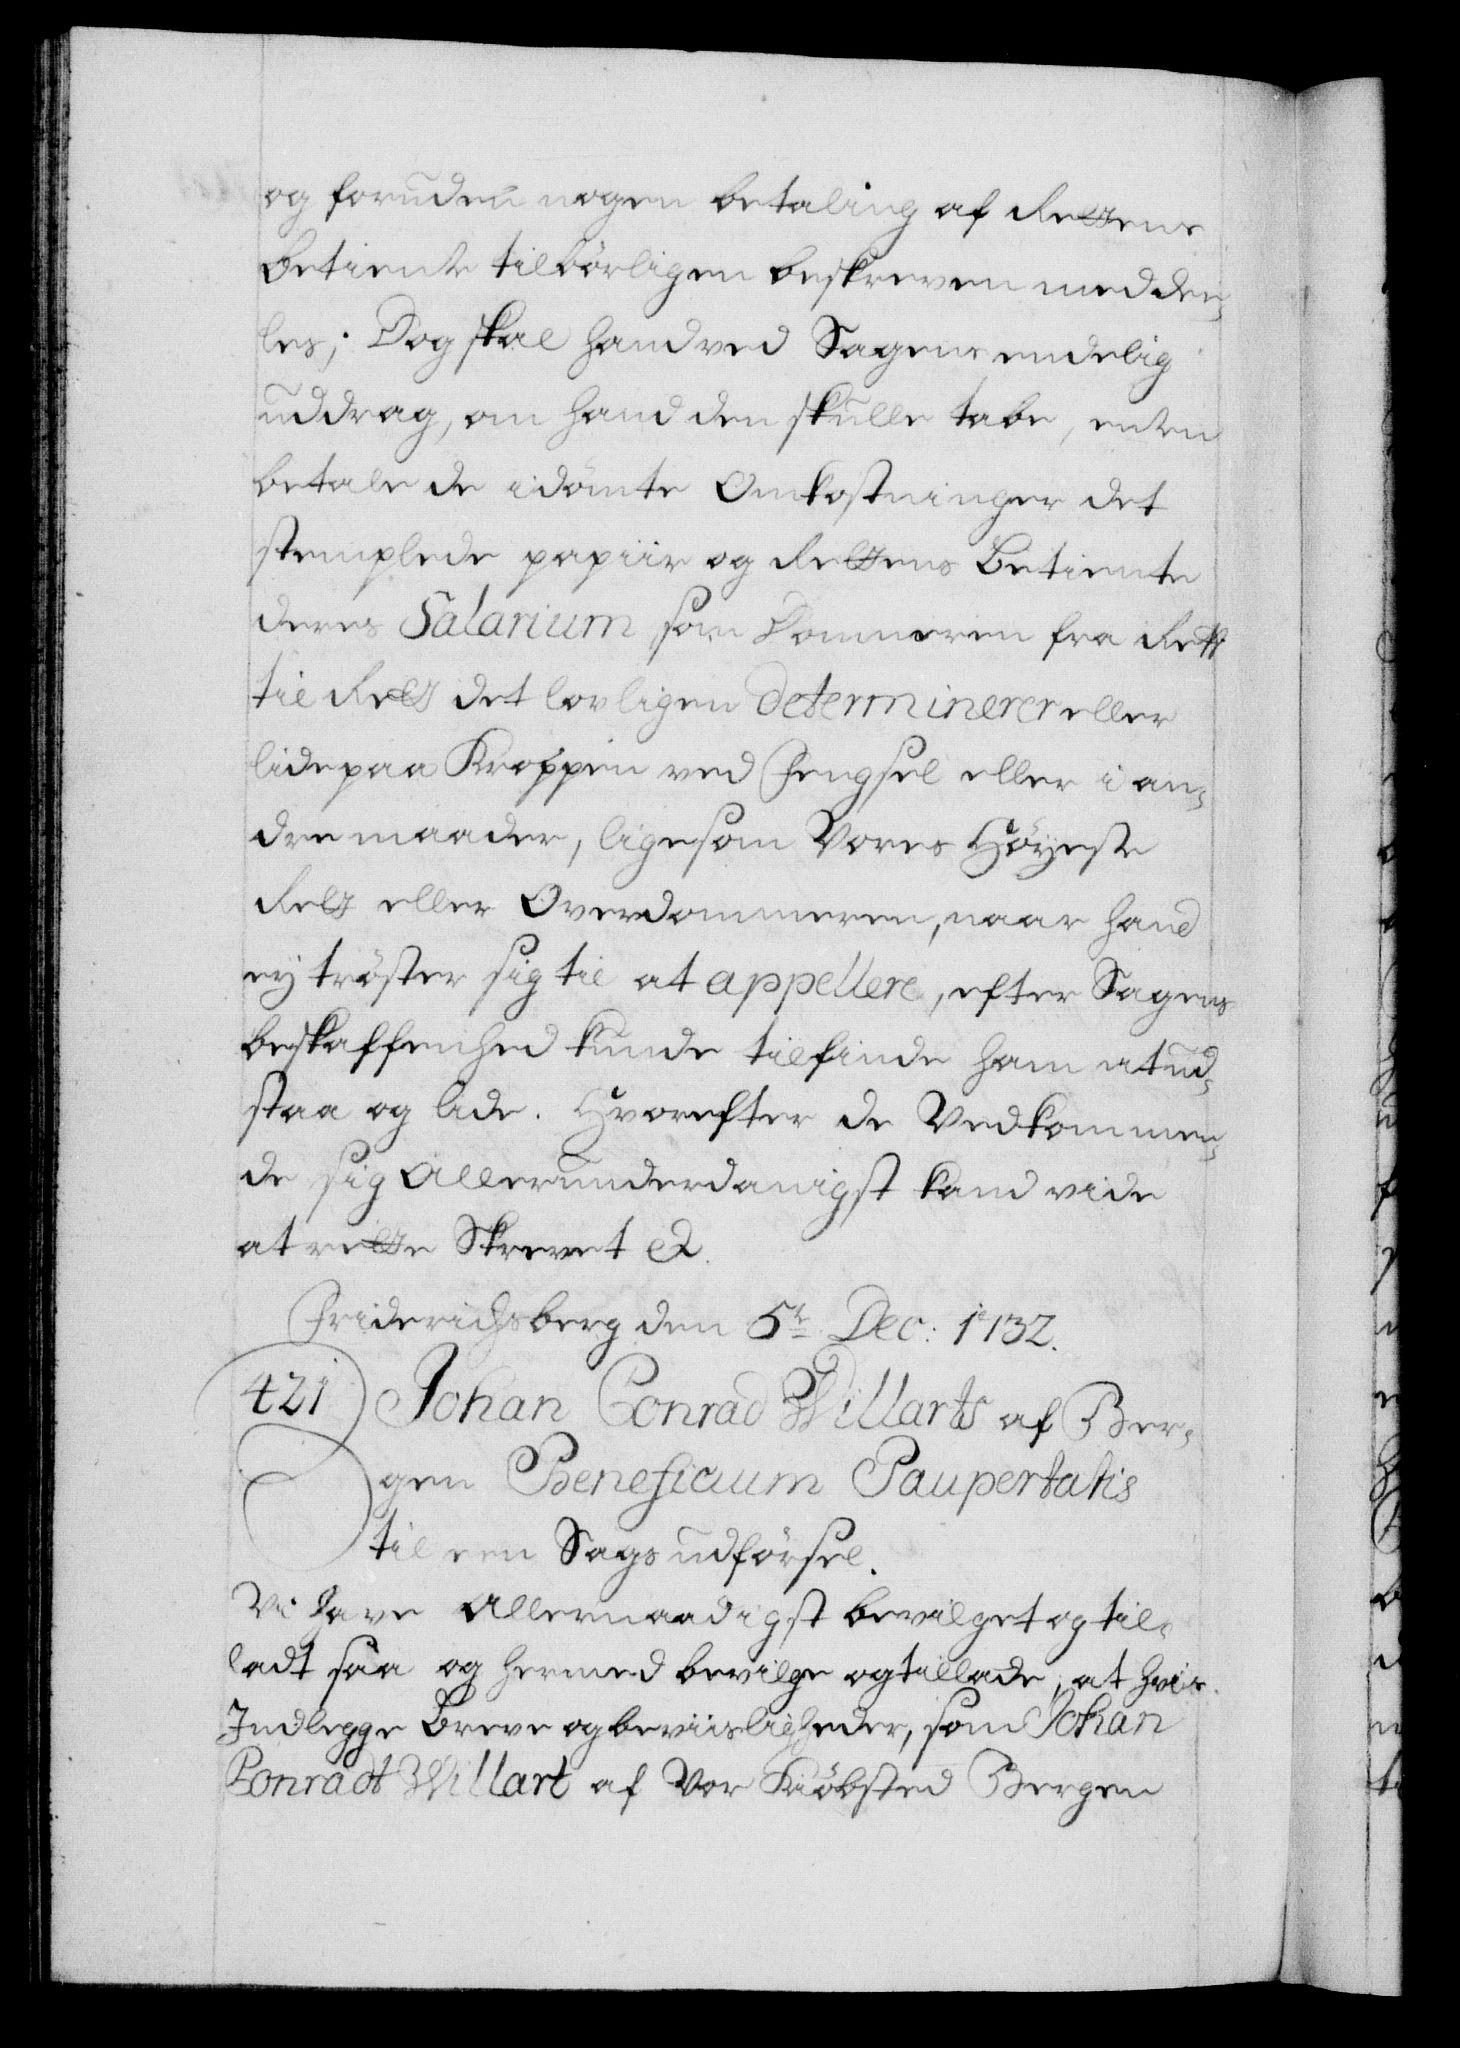 og foruden nogen betaling af Rettens
Betiente tilbörligen beskreven meddee¬
les; Dog skal hand ved Sagens endelig
uddrag, om hand den skulle tabe, enten
betale de idömte Omkostninger det
stemplede papiir og Rettens Betiente
deres Salarium som Dommeren fra Rett
til Rett det lovligen determinerer eller
lide paa Kroppen ved Fengsel eller i an¬
dre maader, ligesom Vores Höyeste
Rett eller Overdommeren, naar hand
ey tröster sig til at appellere, efter Sagens
beskaffenhed kunde tilfinde ham at ud¬
staa og lide. Hvorefter de Vedkommen¬
de sig Allerunderdanigst kand vide
at rette Skrevet &
Friderichsberg den 5te Dec: 1732.
421 Johan Conrad Willarts af Ber¬
gen Beneficium Paupertatis
til een Sags udförsel.
Vi Have Allernaadigst bevilget og til¬
ladt saa og hermed bevilge og tillade, at hvis
Indlegge Breve og beviisligheder, som Johan
Conradt Willart af Vor Kiöbsted Bergen